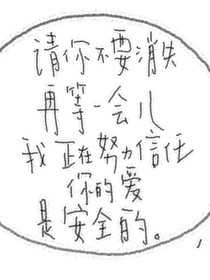 请你不要消失
再等一会儿
我正在努力信任
你的爱
是安全的。